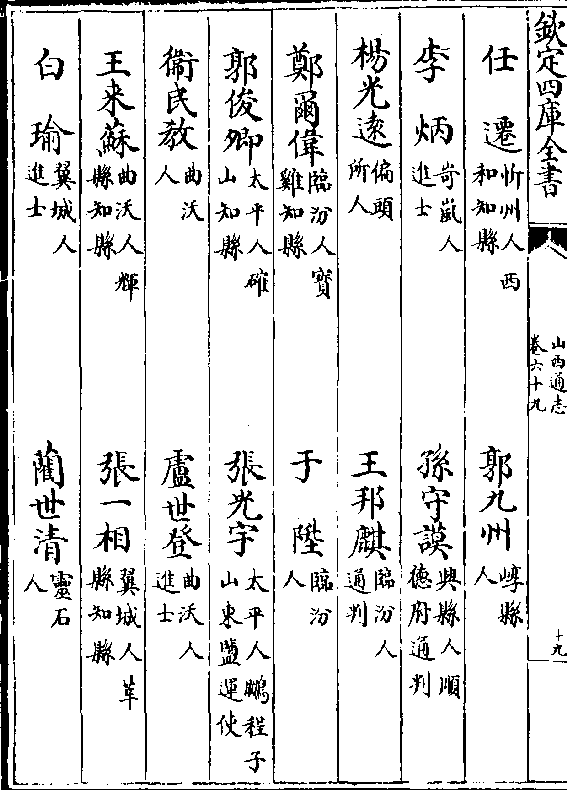 欽定四庫全書
山西通志
卷六十九
十九
任遷忻州人西和知縣
郭九州崞縣人
李炳岢嵐人進士
孫守謨興縣人順德府通判
楊光遠偏頭所人
王邦麒臨汾人通判
鄭爾偉臨汾人寳雞知縣
于陞臨汾人
郭俊卿太平人確山知縣
張光宇太平人鵬程子山東鹽運使
衞民教曲沃人
盧世登曲沃人進士
王来蘇曲沃人輝縣知縣
張一相翼城人莘縣知縣
白瑜翼城人進士
藺世清靈石人